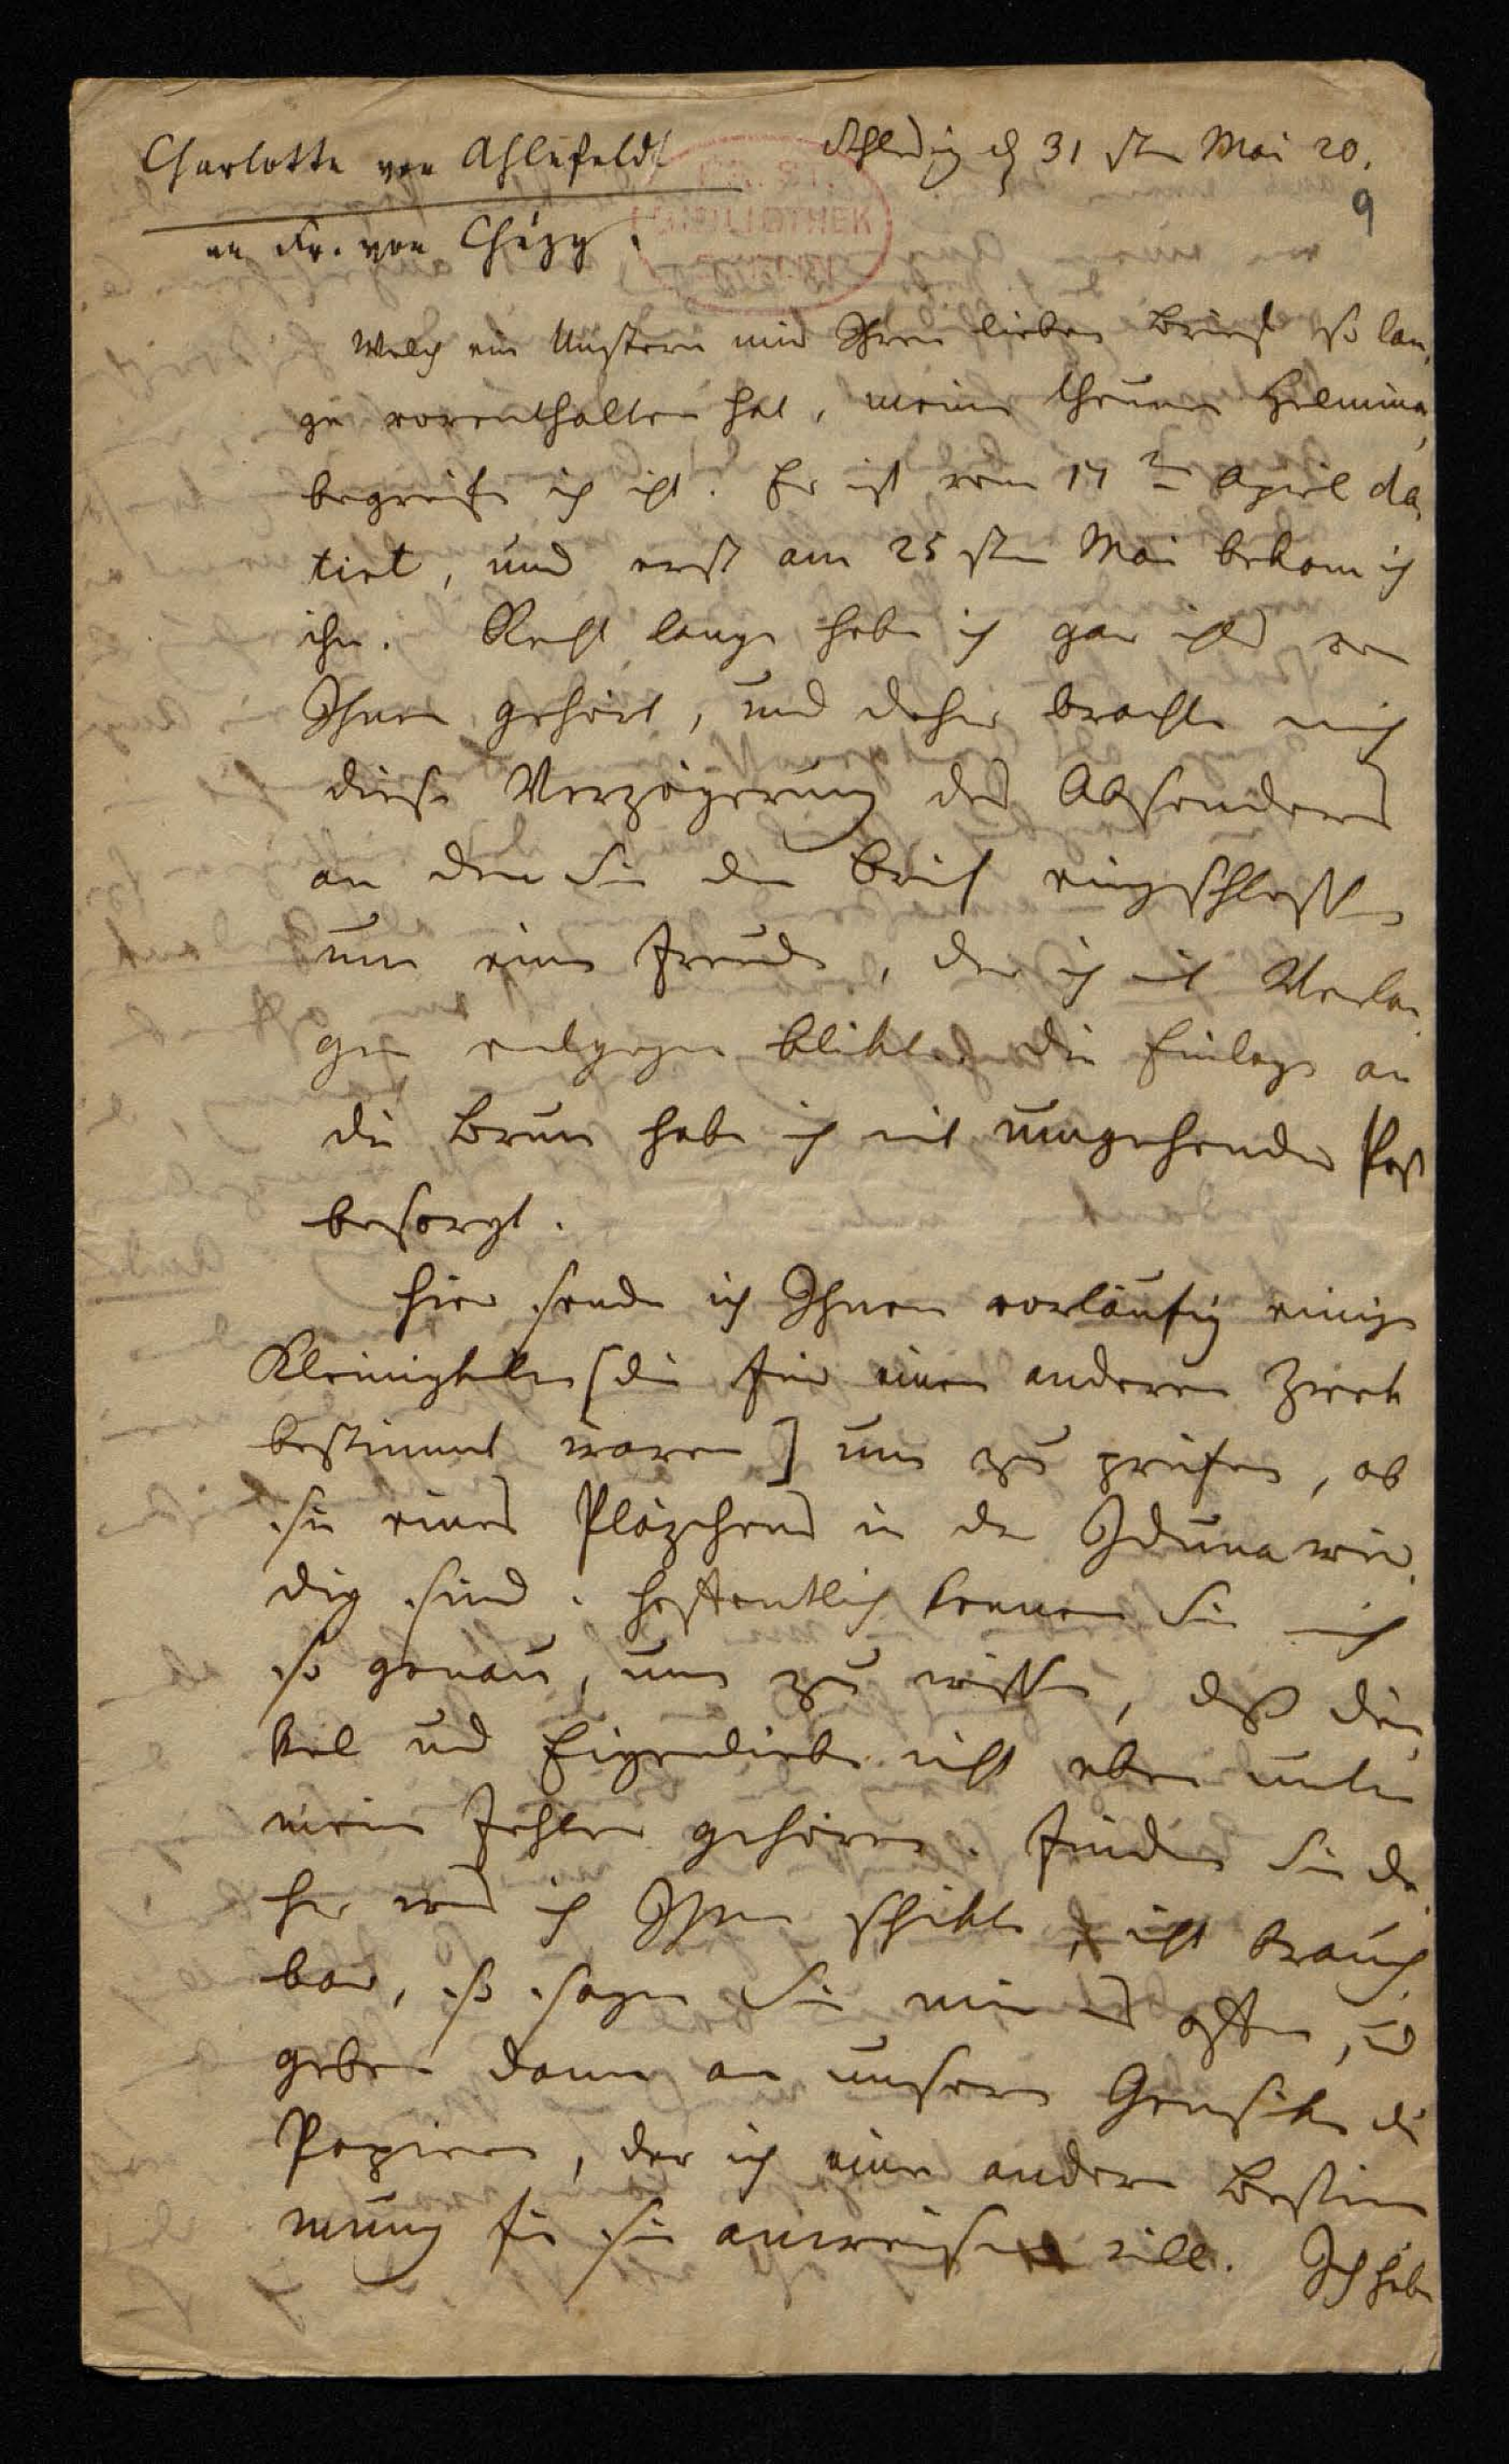 Charlotte von Ahlefeldt
Schleswig d 31 sten Mai 20.
9
an Fr. von Chézy.
KGL. BIBLIOTHEK
Welch ein Unstern mir Ihren lieben Brief so lan,
ge vorenthalten hat, meine theure Helmina,
begreife ich nicht. Er ist vom 17 ten April da,
tirt, und erst am 25 sten Mai bekam ich
ihn. Recht lange habe ich gar nichts von
Ihnen gehört, und daher brachte mich
diese Verzögerung des Absenders
an den Sie den Brief eingeschlossen
um eine Freude, der ich mit Verlan,
gen entgegen blikte. Die Einlage an
die Brun habe ich mit umgehender Post
besorgt.
Hier sende ich Ihnen vorläufig einige
Kleinigkeiten [die für einen anderen Zwek
bestimmt waren] um zu prüfen, ob
sie eines Pläzchens in der Iduna wür,
dig sind. Hoffentlich kennen Sie mich
so genau, um zu wissen, daß Dün,
kel und Eigenliebe nicht eben unter
meine Fehler gehören. Finden Sie da,
her was ich Ihnen schikte, nicht brauch,
bar, so sagen Sie mir es offen, und
geben dann an unsern Gensike die
Papiere, der ich eine andere Bestim
mung für sie anweisen will. Ich habe